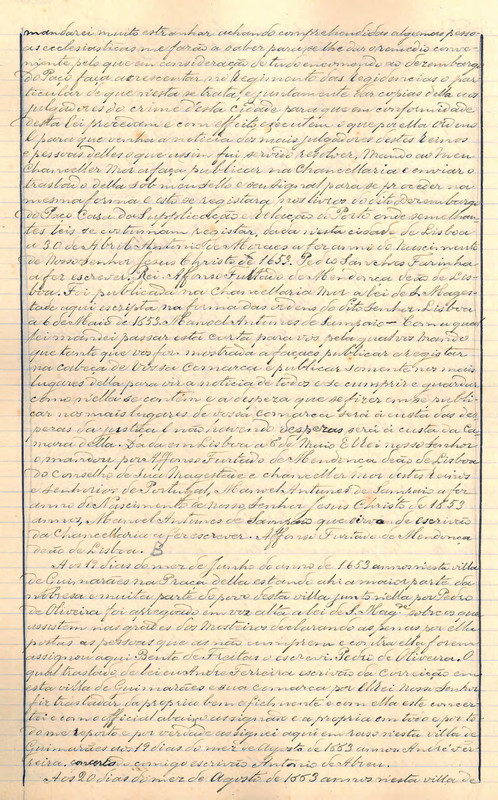 mandarei muito estranhar achando comprehendidas algumas pesso-
as ecclesiasticas me farão a saber para se lhe dar o remedio conve-
niente pelo que em consideração de tudo encomendo ao dezembargo
do Paço faça acrescentar no Regimento das Residencias o par-
ticular de que n'esta se trata, e juntamente dar copias d'ella aos
julgadores do crime d'esta cidade para que em conformidade
desta lei procedam e com effeito executem o que por ella ordeno
E para que venha á noticia dos mais julgadores destes Reinos
e pessoas delles o que assim fui servido resolver, Mando ao meu
Chanceller Mór a faça publicar na Chancellaria e enviar o
traslado della sob meu sello e seu signal para se proceder na
mesma forma e esta se registará nos livros do dito Dezembargo
do Paço Casa da Supplicação e Relação do Porto onde semelhan-
tes leis se costumam registar, dada n'esta cidade de Lisboa
a 30 de Abril Antonio de Moraes a fez anno do Nascimento
de Nosso Senhor Jesus Christo de 1653. Pedro Sanches Farinha
a fez escrever. Rei Affonso Furtado de Mendonça deão de Lis-
boa. Foi publicada na Chancellaria Mór a lei de S. Mages-
tade aqui escripta na forma das ordens do dito Senhor. Lisboa
a 6 de Maio de 1653. Manoel Antunes de Sampaio - Com a qual
lei mandei passar esta carta para vós pela qual vos mando
que tanto que vos for mostrada a façaes publicar e registar
na cabeça de vossa comarca e publicar somente nos mais
lugares della para vir a noticia de todos e se cumprir e guardar
como nella se contem e a despeza que se fizer em se publi-
car nos mais lugares de vossa comarca será á custa das des-
pezas da justiça e não havendo despezas será á custa da Ca-
mara della. Dada em Lisboa a 6 de Maio El Rei nosso Senhor
o mandou por Affonso Furtado de Mendonça deão de Lisboa
do Conselho de Sua Magestade e chanceller mór destes Reinos
e Senhorios de Portugal, Manoel Antunes de Sampaio a fez
anno do Nascimento de Nosso Senhor Jesus Christo de 1653
annos, Manoel Antunes de Sampaio que sirvo de escrivão
da Chancellaria a fez escrever. Affonso Furtado de Mendonça
deão de Lisboa.
Aos 17 dias do mez de Junho do anno de 1653 annos n'esta villa
de Guimarães na Praça della estando ahi a maior parte da
nobresa e muita parte do povo desta villa junto n'ella por Pedro
de Oliveira foi apregoado em voz alta a lei de S. Mag.de sobre os que
assistem nas grades dos Mosteiros declarando as penas por ella
postas as pessoas que as não cumprem e contra ella forem
assignou aqui Bento de Freitas o escrevi. Pedro de Oliveira. O
qual traslado de lei eu André Ferreira escrivão da Correição em
esta villa de Guimarães e sua comarca por El Rei Nosso Senhor
fiz trasladar da propria bem e fielmente e com ella este concer-
tei e com o official abaixo assignado e a propria em tudo e por tu-
do me reporto e por verdade assignei aqui em raso n'esta villa de
Guimarães aos 19 dias do mez de Agosto de 1653 annos André Fer-
reira. concertado comigo escrivão Antonio de Abreu.
Aos 20 dias do mez de Agosto de 1653 annos n'esta villa de